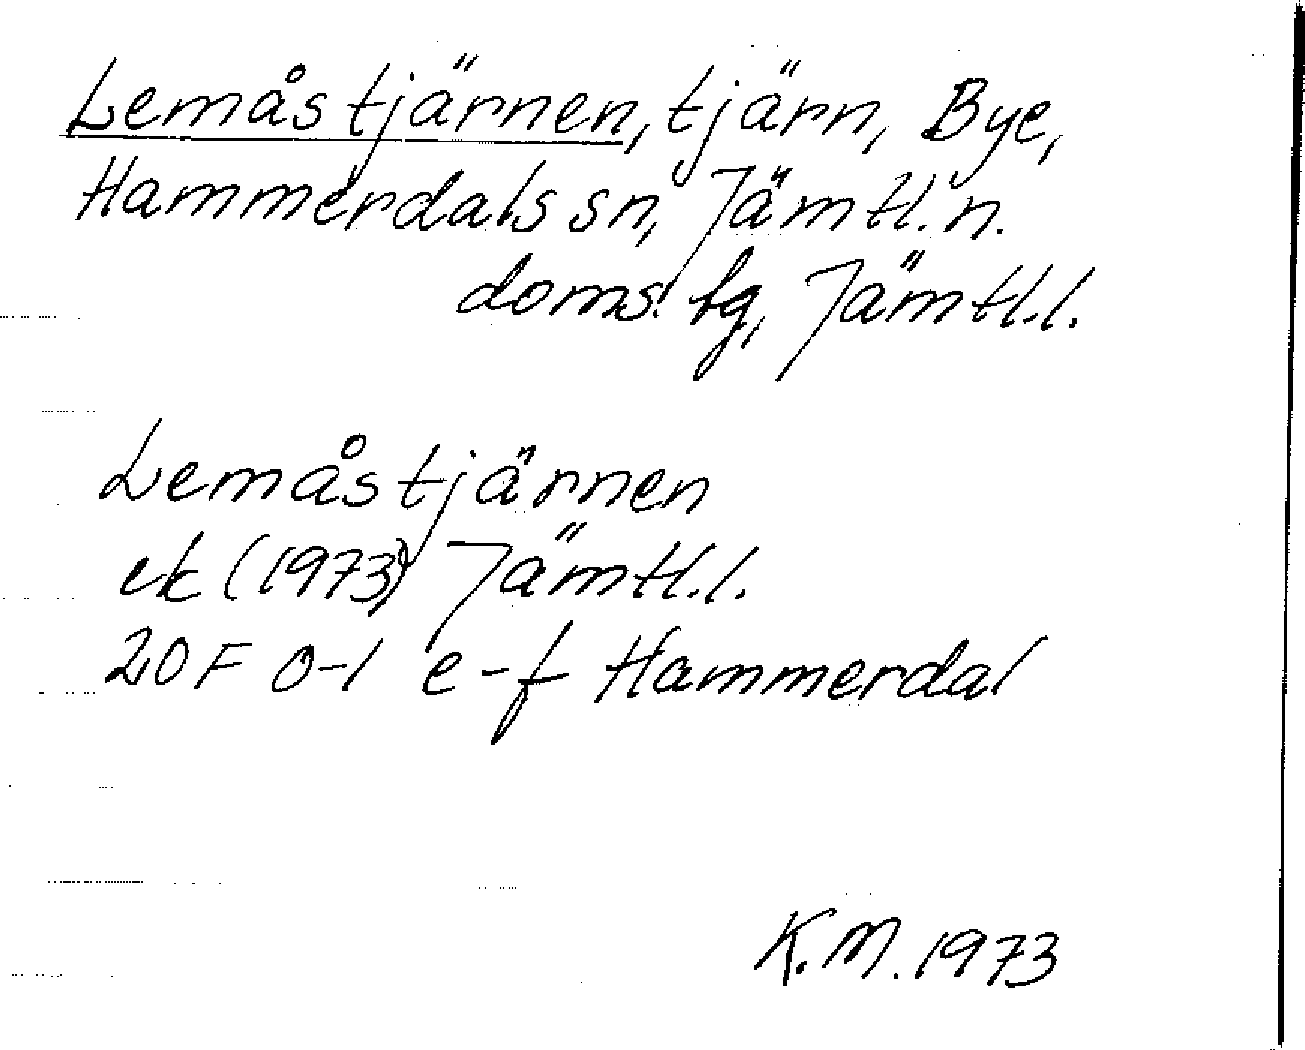 Lemåstjärnen, tjärn, Bye,
Hammerdals sn, Jämtl. n.
doms. tg, Jämtl. l.
Lemåstjärnen
ek (1973) Jämtl. l.
20F 0-1 e-f Hammerdal
K.M. 1973